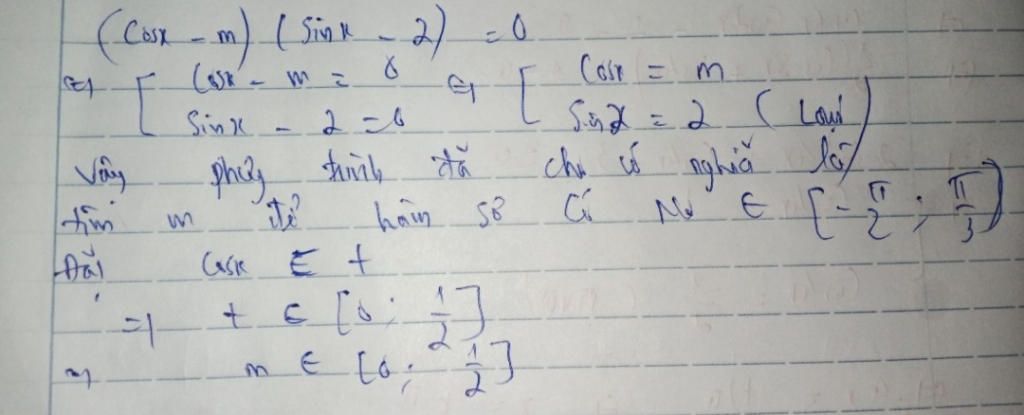 (Cosx - m) (Sinx - 2) = 0
⇔ [ Cosx - m = 0 ⇔ [ Cosx = m
Sinx - 2 = 0 Sinx = 2 (Loại)
Vậy phương trình đã cho có nghiệm là
tìm m để hàm số Có No ∈ [-π/2; π/3)
Đặt Cosx ∈ t
⇒ t ∈ [0; 1/2]
⇒ m ∈ [0; 1/2]